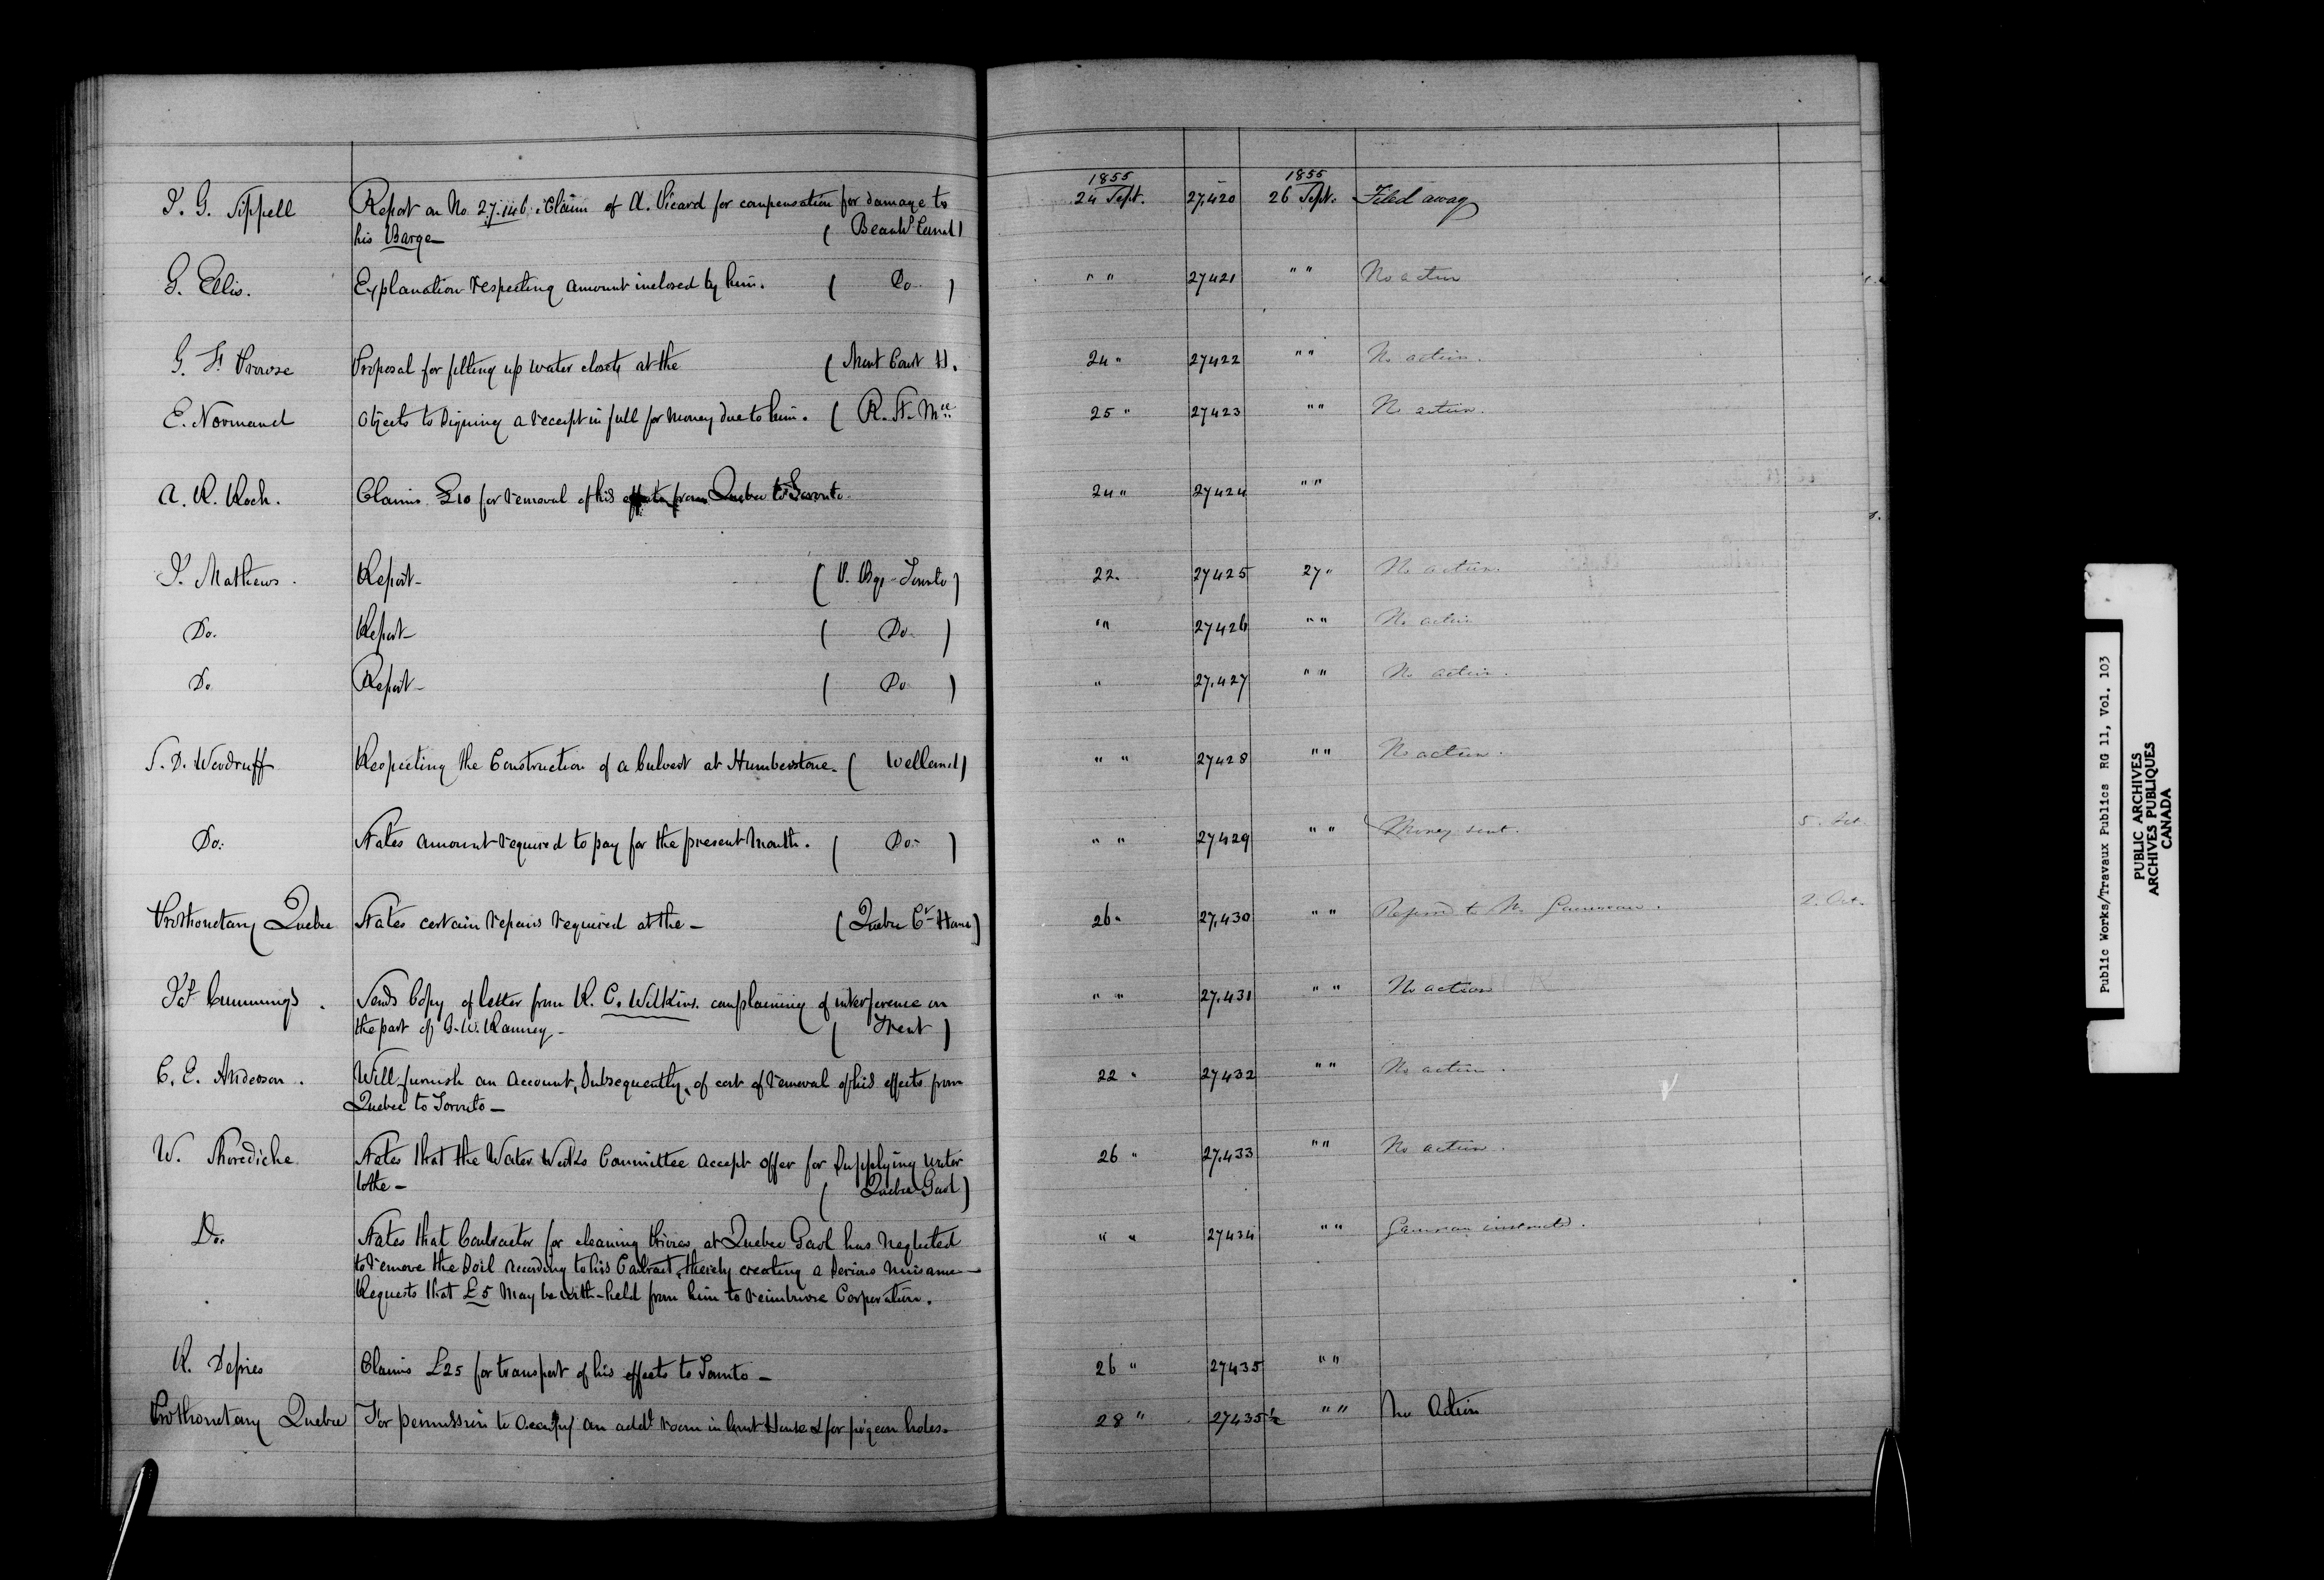 1855 1855
J. G. Sippell Report on No 27.146. Claim of A. Picard for compensation for damage to 24 Sept. 27,420 26 Sept. Filed away
his Barge ( Beauhs Canal )
G. Ellis. Explanation respecting amount inclosed by him. ( Do. ) " " 27421 " " No action
G. H. Prowse Proposal for fitting up water closets at the ( Mont Court H. 24 " 27422 " " No action.
E. Normand Objects to signing a receipt in full for money due to him. ( R. St. Mce 25 " 27423 " " No action.
A. R. Roch. Claims £10 for removal of his effects from Quebec to Toronto. 24 " 27424 " "
J. Mathews. Report - ( P. Bgs - Toronto ) 22. 27425 27 " No action.
Do. Report - ( Do. ) " " 27426 " " No action
Do Report - ( Do ) " 27.427 " " No action.
S. D. Woodruff Respecting the Construction of a Culvert at Humberstone. ( Welland ) " " 27428 " " No action.
Do: States amount required to pay for the present month. ( Do - ) " " 27429 " " Money sent. 5. Oct.
Prothonotary Quebec States certain repairs required at the - ( Quebec Ct House ) 26 " 27,430 " " Referred to Mr Gauvreau. 2. Oct.
Jas Cummings. Sends Copy of letter from R. C. Wilkins. complaining of interference on " " 27.431 " " No action
the part of G. W. Ranney - ( Trent )
C. E. Anderson. Will furnish an Account, Subsequently, of cost of removal of his effects from 22 " 27432 " " No action.
Quebec to Toronto -
W. Shorediche States that the Water Works Committee accept offer for Supplying water 26 " 27.433 " " No action.
to the - ( Quebec Gaol )
Do. States that Contractor for cleaning Privies at Quebec Gaol has neglected " " 27434 " " Gauvreau instructed.
to remove the Soil According to his Contract, thereby creating a Serious Nuisance -
Requests that £5 May be with-held from him to reimburse Corporation.
R. Defries Claims £25 for transport of his effects to Toronto - 26 " 27435 " "
Prothonotary Quebec For permission to Occupy an addl room in Court House & for pigeon holes. 28 " 27435½ " " No Action
Public Works/Travaux Publics RG 11, Vol. 103
PUBLIC ARCHIVES
ARCHIVES PUBLIQUES
CANADA